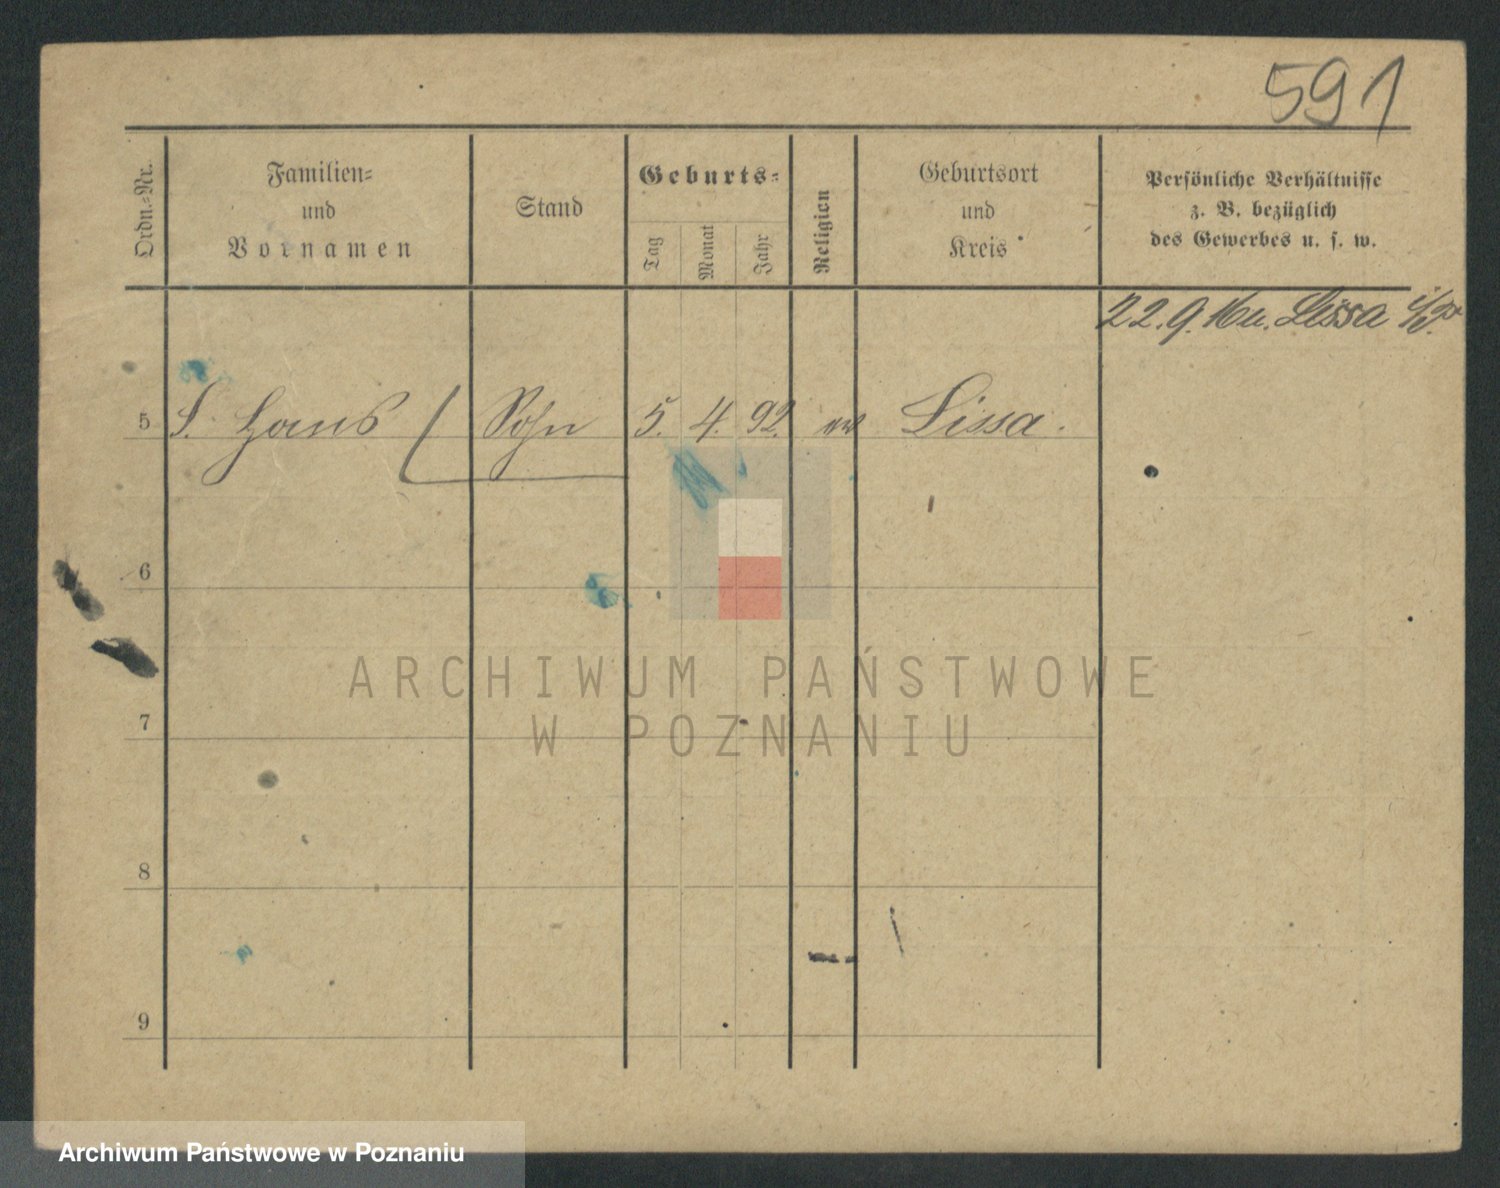 591
Ordn.-Nr.
Familien-
und
Vornamen
Stand
Geburts-
Tag
Monat
Jahr
Religion
Geburtsort
und
Kreis
Persönliche Verhältnisse
z. B. bezüglich
des Gewerbes u. s. w.
22.9. Lissa
5 S. Hans Sohn 5. 4. 92. ev Lissa.
6
7
8
9
ARCHIWUM PAŃSTWOWE
W POZNANIU
Archiwum Państwowe w Poznaniu